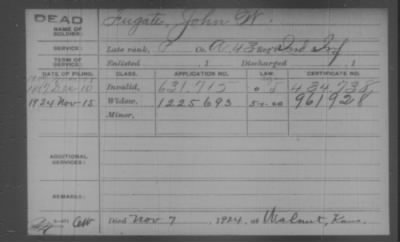 DEAD
NAME OF SOLDIER: Fugate, John W.
SERVICE: Late rank, P Co. A, 43 Ind Inf
TERM OF SERVICE: Enlisted , 1 Discharged , 1
DATE OF FILING. CLASS. APPLICATION NO. LAW. CERTIFICATE NO.
Dec 10 Invalid, 631.715 434.738
1924 Nov 15 Widow, 1225693 961928
Minor,
ADDITIONAL SERVICES:
REMARKS:
Died Nov 7, 1924, at Walnut, Kans.